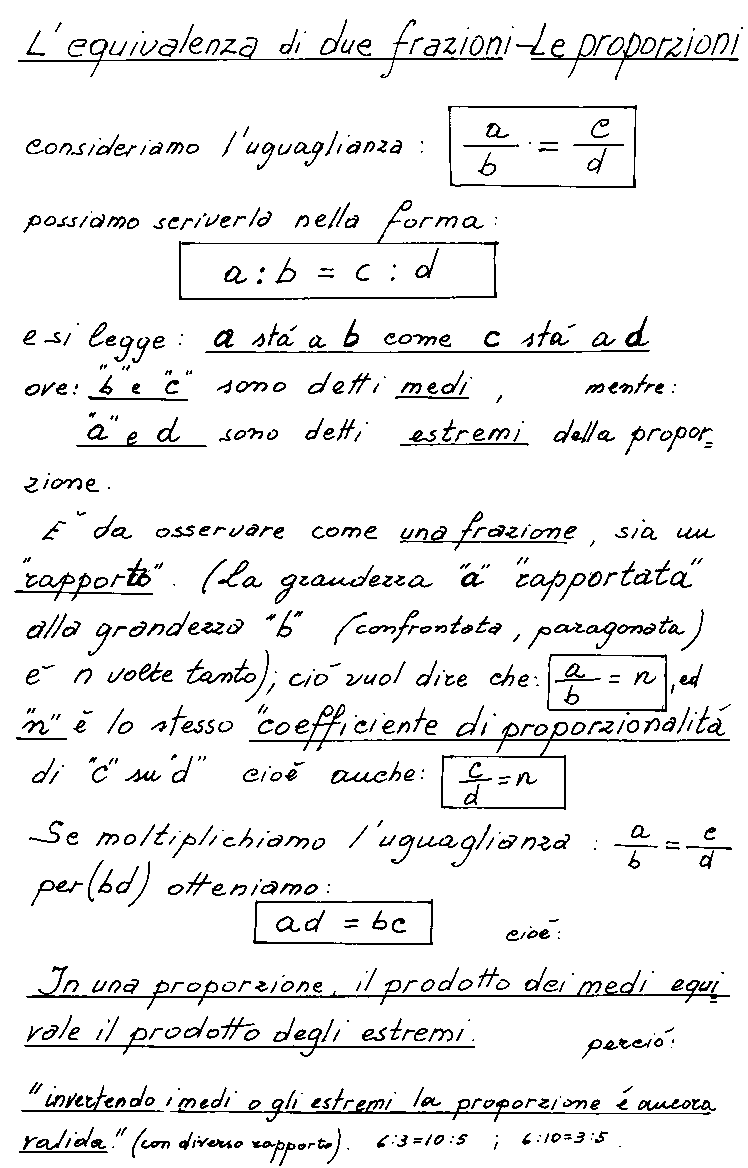 L'equivalenza di due frazioni-Le proporzioni
consideriamo l'uguaglianza: a/b = c/d
possiamo scriverla nella forma:
a : b = c : d
e si legge: a stá a b come c stá a d
ove: "b" e "c" sono detti medi, mentre:
"a" e d sono detti estremi della propor=
zione.
E' da osservare come una frazione, sia un
"rapporto". (La grandezza "a" "rapportata"
alla grandezza "b" (confrontata, paragonata)
é n volte tanto); ció vuol dire che: a/b = n, ed
"n" é lo stesso "coefficiente di proporzionalitá
di "c" su "d" cioé anche: c/d = n
Se moltiplichiamo l'uguaglianza: a/b = c/d
per (bd) otteniamo:
ad = bc cioé:
In una proporzione, il prodotto dei medi equi=
vale il prodotto degli estremi. perció:
"invertendo i medi o gli estremi la proporzione é ancora
valida." (con diverso rapporto). 6:3=10:5 ; 6:10=3:5.